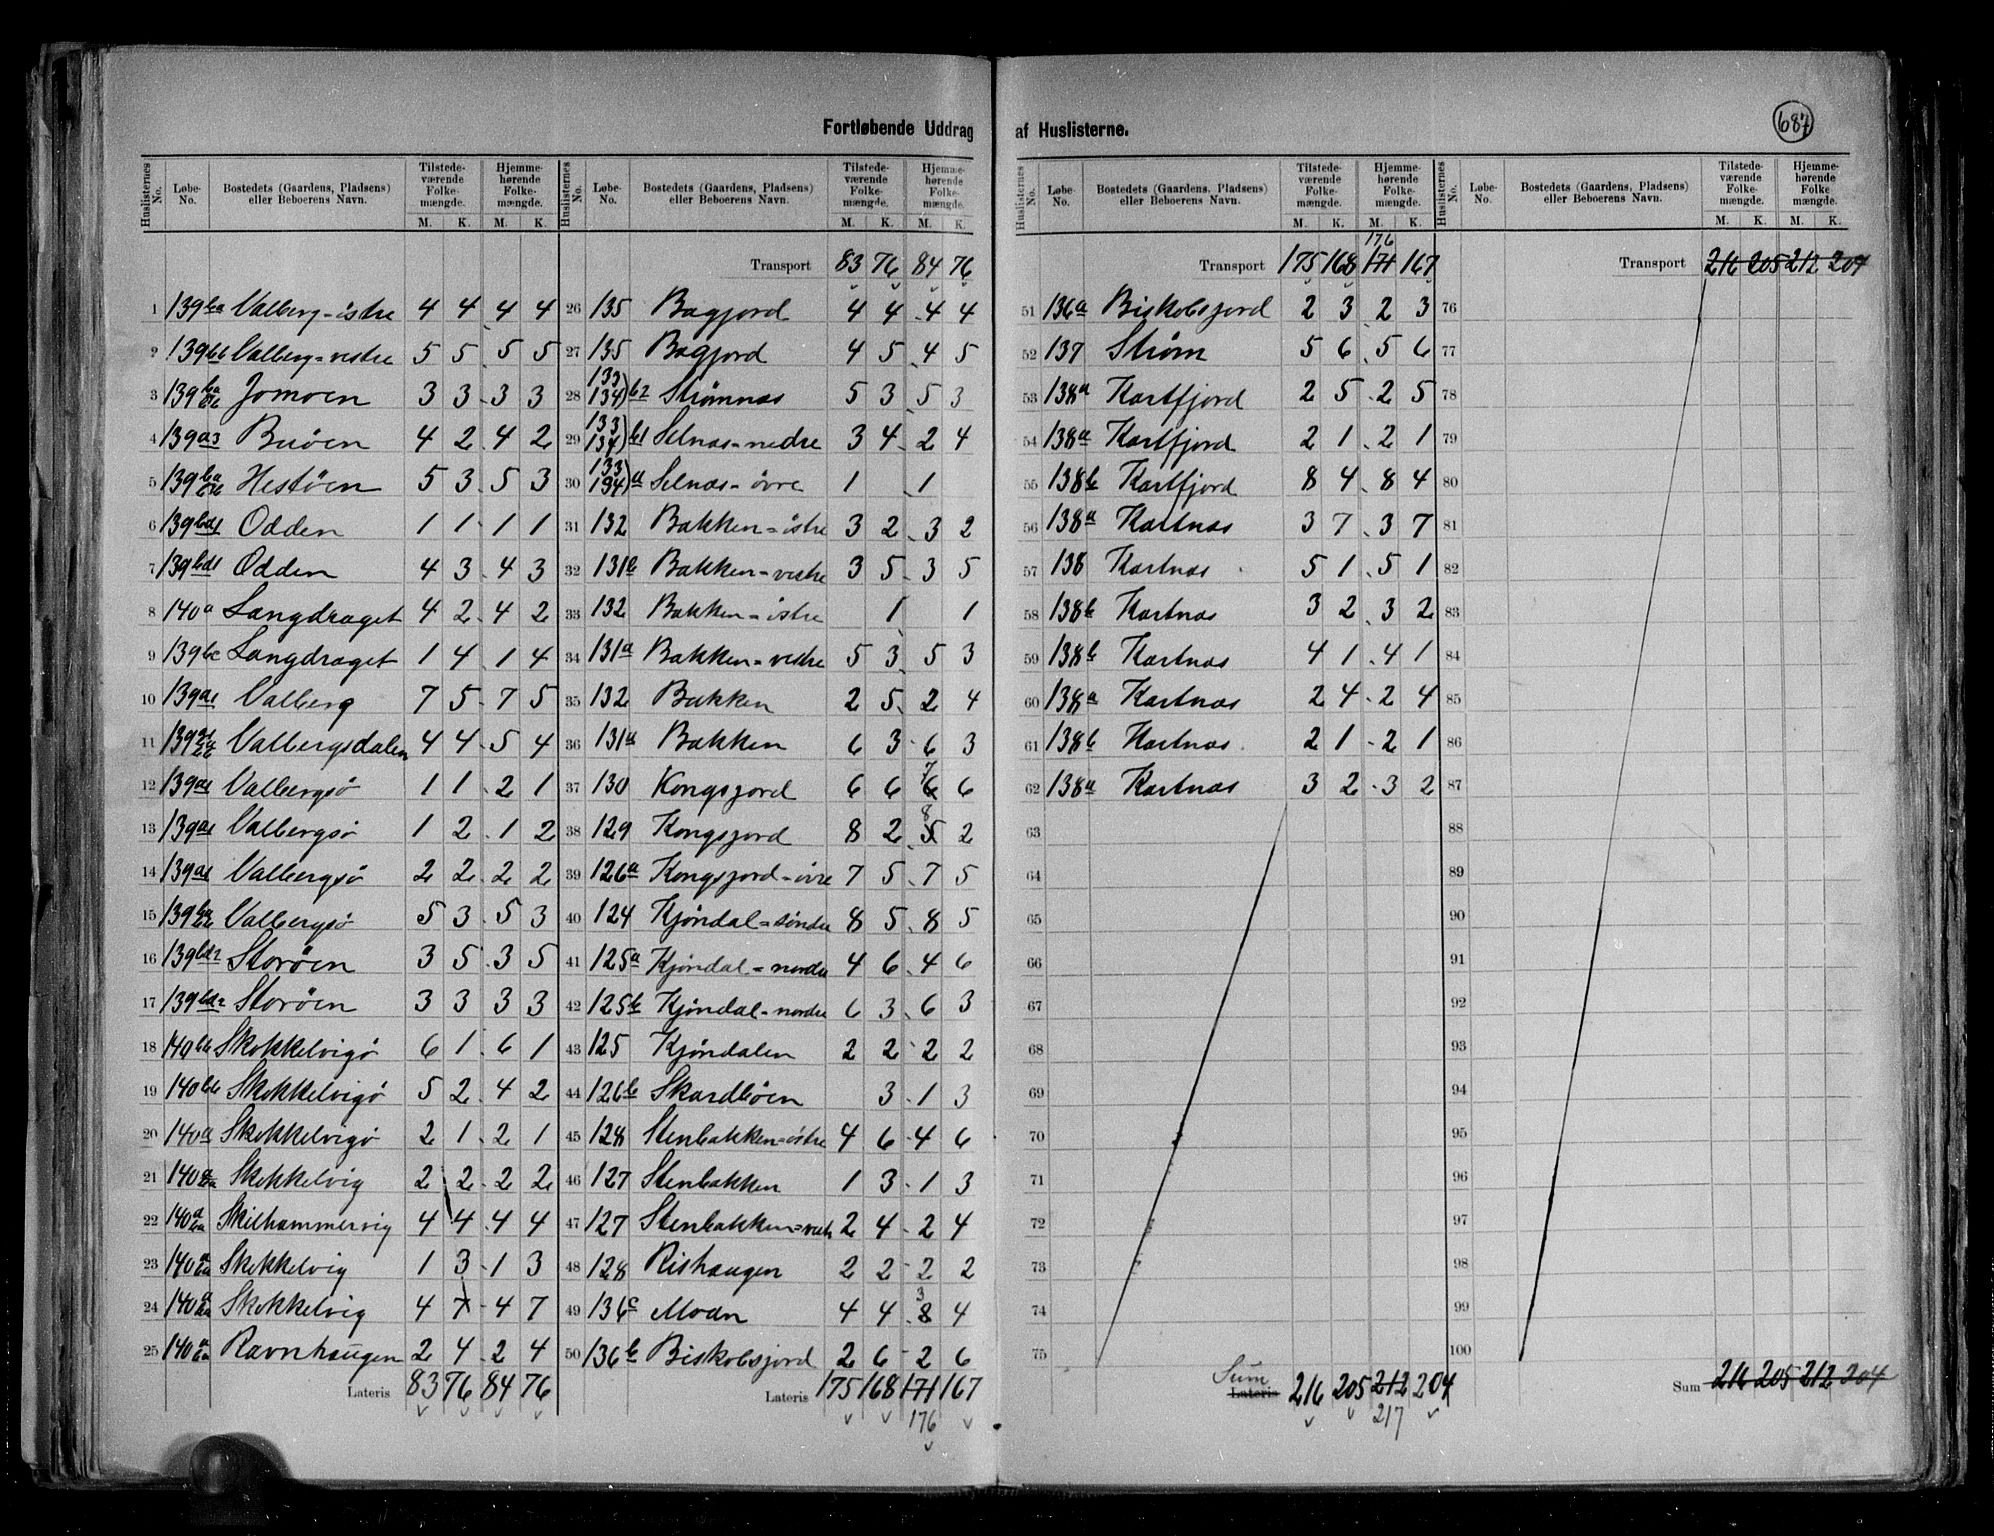 Fortløbende Uddrag af Huslisterne.
687
Huslisternes No. | Løbe-No. | Bostedets (Gaardens, Pladsens) eller Beboerens Navn. | Tilstedeværende Folkemængde. M. K. | Hjemmehørende Folkemængde. M. K.
1 139 Valberg-östre 4 4 4 4
2 139 Valberg-vestre 5 5 5 5
3 139 Jomoen 3 3 3 3
4 139a3 Buöen 4 2 4 2
5 139 Hestöen 5 3 5 3
6 139bd1 Odden 1 1 1 1
7 139bd1 Odden 4 3 4 3
8 140a Langdraget 4 2 4 2
9 139bc Langdraget 1 4 1 4
10 139a1 Valberg 7 5 7 5
11 139 Valbergsdalen 4 4 5 4
12 139a1 Valbergsö 1 1 2 1
13 139a1 Valbergsö 1 2 1 2
14 139a1 Valbergsö 2 2 2 2
15 139 Valbergsö 5 3 5 3
16 139bd2 Storöen 3 5 3 5
17 139bd2 Storöen 3 3 3 3
18 140bb Skokkelvigö 6 1 6 1
19 140bb Skokkelvigö 5 2 4 2
20 140a Skokkelvigö 2 1 2 1
21 140 Skokkelvig 2 2 2 2
22 140 Skithammervig 4 4 4 4
23 140 Skokkelvig 1 3 1 3
24 140 Skokkelvig 4 7 4 7
25 140 Ravnhaugen 2 4 2 4
Lateris 83 76 84 76
Huslisternes No. | Løbe-No. | Bostedets (Gaardens, Pladsens) eller Beboerens Navn. | Tilstedeværende Folkemængde. M. K. | Hjemmehørende Folkemængde. M. K.
Transport 83 76 84 76
26 135 Bagjord 4 4 4 4
27 135 Bagjord 4 5 4 5
28 133 134) b2 Strømnas 5 3 5 3
29 133 134) b1 Selnas-nedre 3 4 2 4
30 133 134) a Selnas-övre 1 1
31 132 Bakken-östre 3 2 3 2
32 131b Bakken-vestre 3 5 3 5
33 132 Bakken-östre 1 1
34 131a Bakken-vestre 5 3 5 3
35 132 Bakken 2 5 2 4
36 131a Bakken 6 3 6 3
37 130 Kongsjord 6 6 6 7 6
38 129 Kongsjord 8 2 5 8 2
39 126a Kongsjord-övre 7 5 7 5
40 124 Kjöndal-söndre 8 5 8 5
41 125a Kjöndal-nordre 4 6 4 6
42 125b Kjöndal-nordre 6 3 6 3
43 125 Kjöndalen 2 2 2 2
44 126b Skardböen 3 1 3
45 128 Stenbakken-östre 4 6 4 6
46 127 Stenbakken 1 3 1 3
47 127 Stenbakken-vestr 2 4 2 4
48 128 Rishaugen 2 2 2 2
49 136c Moan 4 4 8 3 4
50 136b Biskobsjord 2 6 2 6
Lateris 175 168 171 167
176
Huslisternes No. | Løbe-No. | Bostedets (Gaardens, Pladsens) eller Beboerens Navn. | Tilstedeværende Folkemængde. M. K. | Hjemmehørende Folkemængde. M. K.
176
Transport 175 168 171 167
51 136a Biskobsjord 2 3 2 3
52 137 Strøm 5 6 5 6
53 138a Kartfjord 2 5 2 5
54 138a Kartfjord 2 1 2 1
55 138b Kartfjord 8 4 8 4
56 138a Kartnas 3 7 3 7
57 138 Kartnas 5 1 5 1
58 138b Kartnas 3 2 3 2
59 138b Kartnas 4 1 4 1
60 138a Kartnas 2 4 2 4
61 138b Kartnas 2 1 2 1
62 138a Kartnas 3 2 3 2
63
64
65
66
67
68
69
70
71
72
73
74
75
Sum Lateris 216 205 212 204
217
Huslisternes No. | Løbe-No. | Bostedets (Gaardens, Pladsens) eller Beboerens Navn. | Tilstedeværende Folkemængde. M. K. | Hjemmehørende Folkemængde. M. K.
Transport 216 205 212 204
76
77
78
79
80
81
82
83
84
85
86
87
88
89
90
91
92
93
94
95
96
97
98
99
100
Sum 216 205 212 204